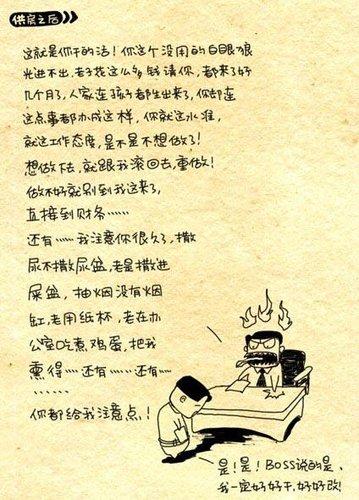 供房之后
这就是你干的活！你这个没用的白眼狼
光进不出，老子花这么多钱请你，都来了好
几个月了，人家连孩子都生出来了，你却连
这点事都办成这样，你就这水准，
就这工作态度，是不是不想做了！
想做下去，就跟我滚回去，重做！
做不好就别到我这来了，
直接到财务……
还有……我注意你很久了，撒
尿不撒尿盆，老是撒进
屎盆，抽烟没有烟
缸，老用纸杯，老在办
公室吃煮鸡蛋，把我
熏得……还有……还有……
……
你都给我注意点！
是！是！BOSS说的是，
我一定好好干，好好改！